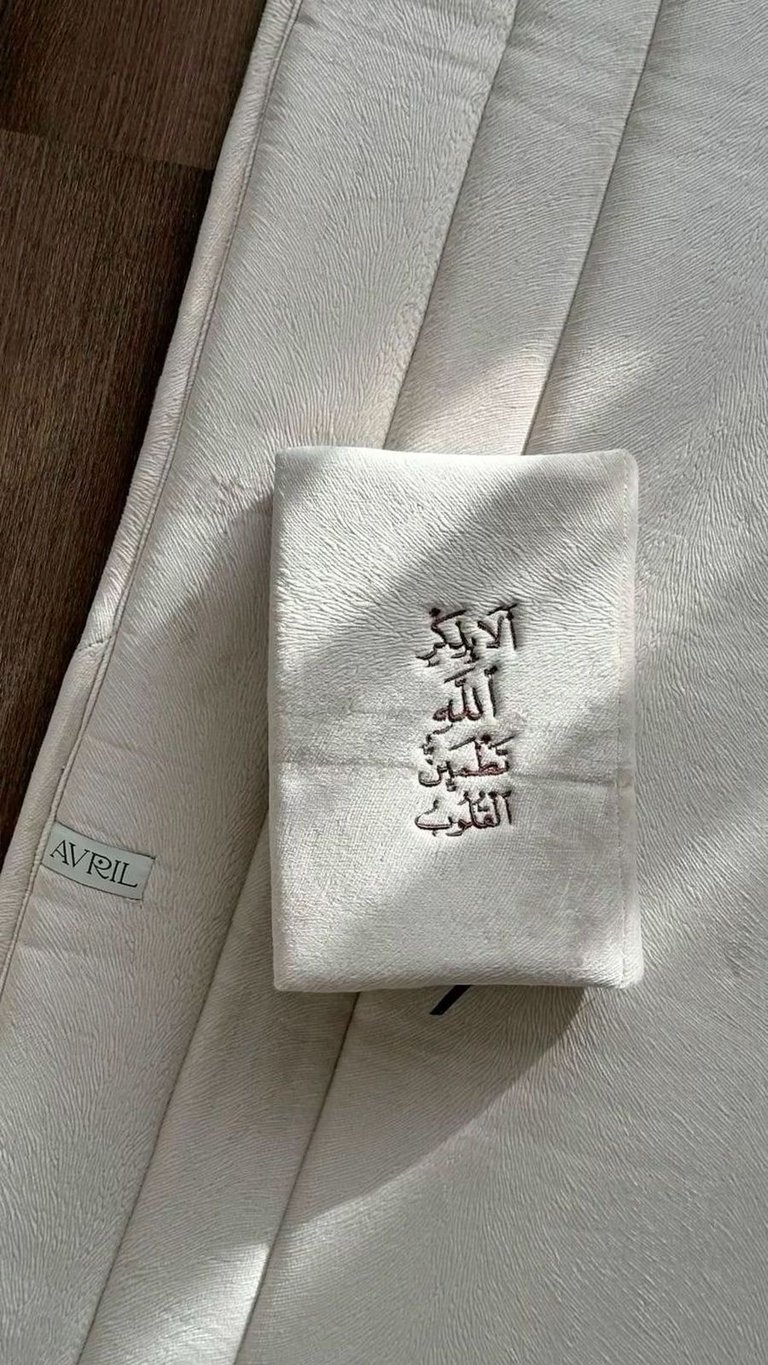 أَلَا بِذِكْرِ
ٱللَّهِ
تَطْمَئِنُّ
ٱلْقُلُوبُ
AVRIL